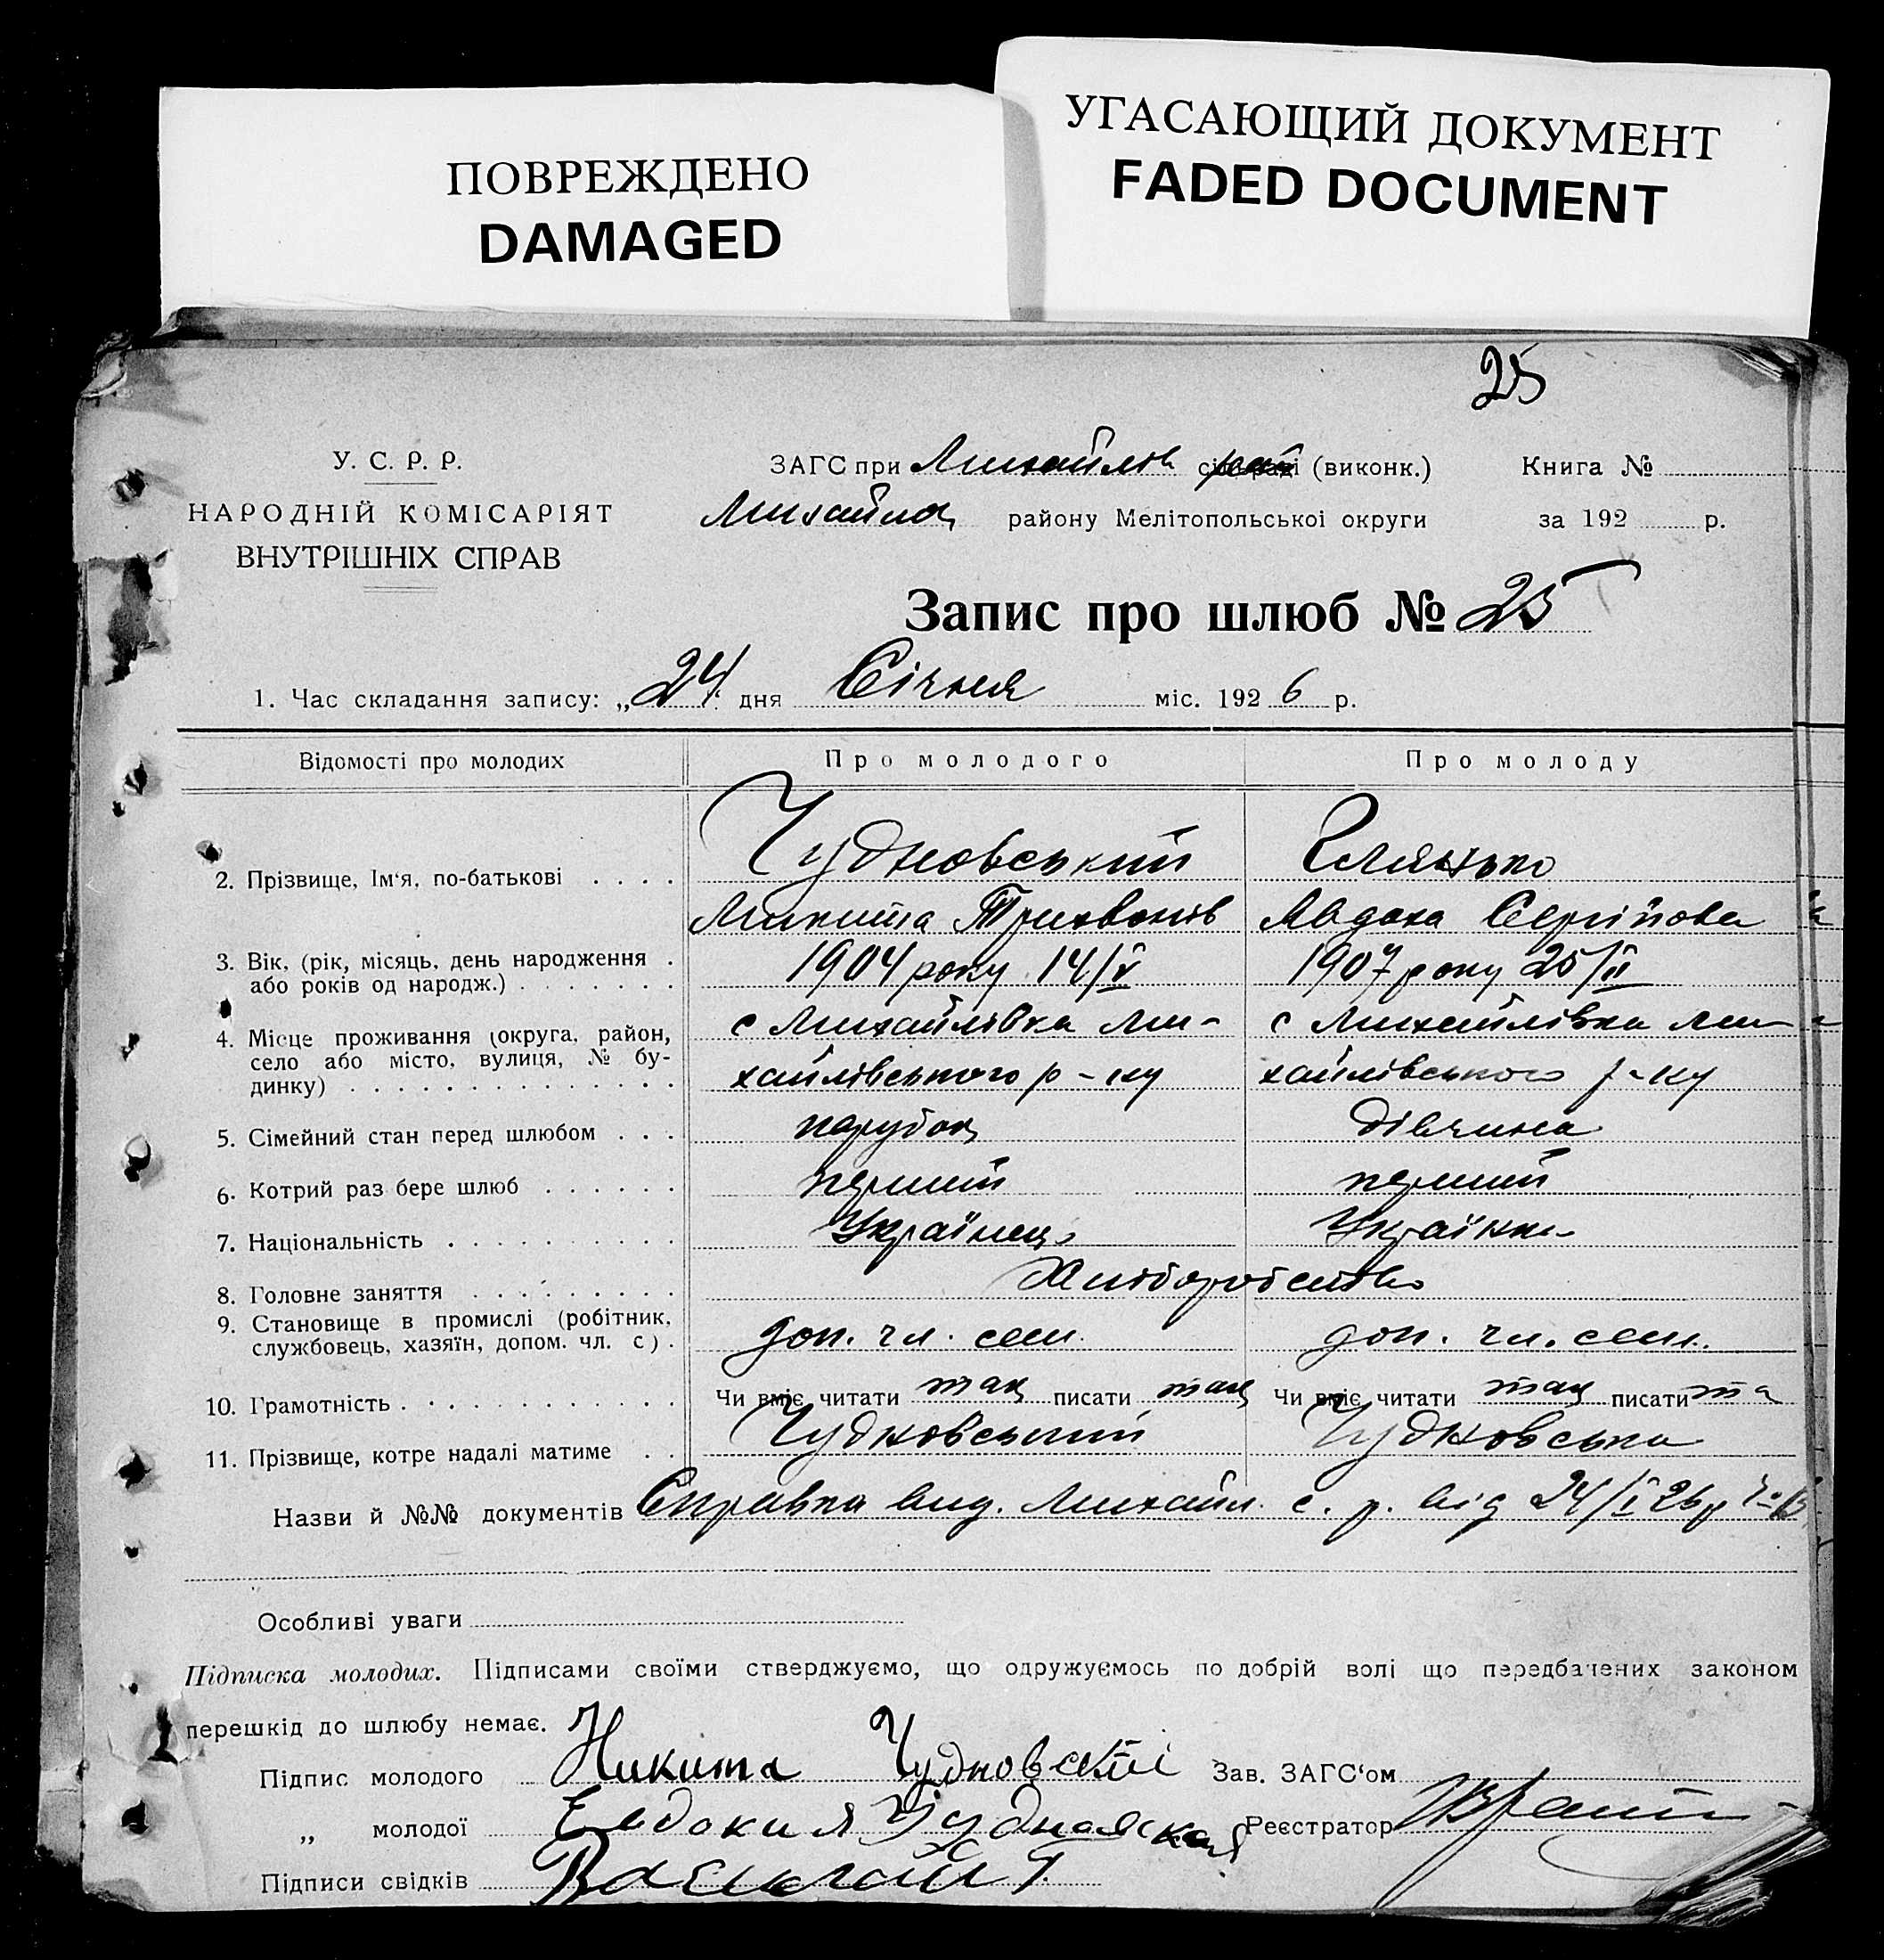 ПОВРЕЖДЕНО
DAMAGED
УГАСАЮЩИЙ ДОКУМЕНТ
FADED DOCUMENT
25
У. С. Р. Р.
НАРОДНІЙ КОМІСАРІЯТ
ВНУТРІШНІХ СПРАВ
ЗАГС при Михайлів рай (виконк.) Книга №
Михайлов району Мелітопольської округи за 192 р.
Запис про шлюб № 25
1. Час складання запису: „24 дня Січня міс. 1926 р.
Відомості про молодих Про молодого Про молоду
2. Прізвище, Ім‘я, по-батькові Чудновський
Микита Трихвонів Авдоха Сергіїова
3. Вік, (рік, місяць, день народження 1904 року 14/V 1907 року 25/II
або років од народж.)
4. Місце проживання (округа, район, с Михайлівка Ми- с Михайлівка Ми-
село або місто, вулиця, № бу- хайлівського р-ну хайлівського р-ну
динку)
5. Сімейний стан перед шлюбом парубок дівчина
6. Котрий раз бере шлюб перший перший
7. Національність Українець Українка
8. Головне заняття Хлiборобство
9. Становище в промислі (робітник, доп. чл. сем. доп. чл. сем.
службовець, хазяїн, допом. чл. с)
10. Грамотність Чи вміє читати так писати так Чи вміє читати так писати та
11. Прізвище, котре надалі матиме Чудновський Чудновська
Назви й №№ документів Справка вид. Михайл. с. р. від 24/I 26 р
Особливі уваги
Підписка молодих. Підписами своїми стверджуємо, що одружуємось по добрій волі що передбачених законом
перешкід до шлюбу немає.
Підпис молодого Никита Чудновский Зав. ЗАГС‘ом
„ молодої Евдокия Чудновская Реєстратор
Підписи свідків